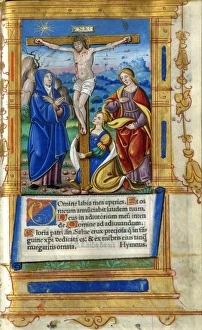 Omine labia mea aperies. Et os
meum annũciabit laudem tuam.
Deus in adiutorium meũ inten
de. Domine ad adiuuandum.
Gloria patri. Salue crux preciosa q̃ in sã
guine xp̃i dedicata es: & ex mẽbris eius tanq̃
margaritis ornata. Hymnus.